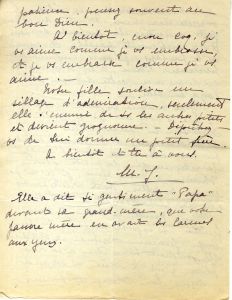 patience, pensez souvent au
bon Dieu.
A bientôt, mon coq, je
vs aime comme je vs embrasse,
et je vs embrasse comme je vs
aime. —
Votre fille soulève un
sillage d'admiration, seulement
elle s'ennuie de ses autres petits
et devient grognonne. — Dépêchez-
vs de lui donner un petit frère.
A bientôt tte à vous.
M. J.
Elle a dit si gentiment "Papa"
devant sa grand-mère, que votre
pauvre mère en avait les larmes
aux yeux.